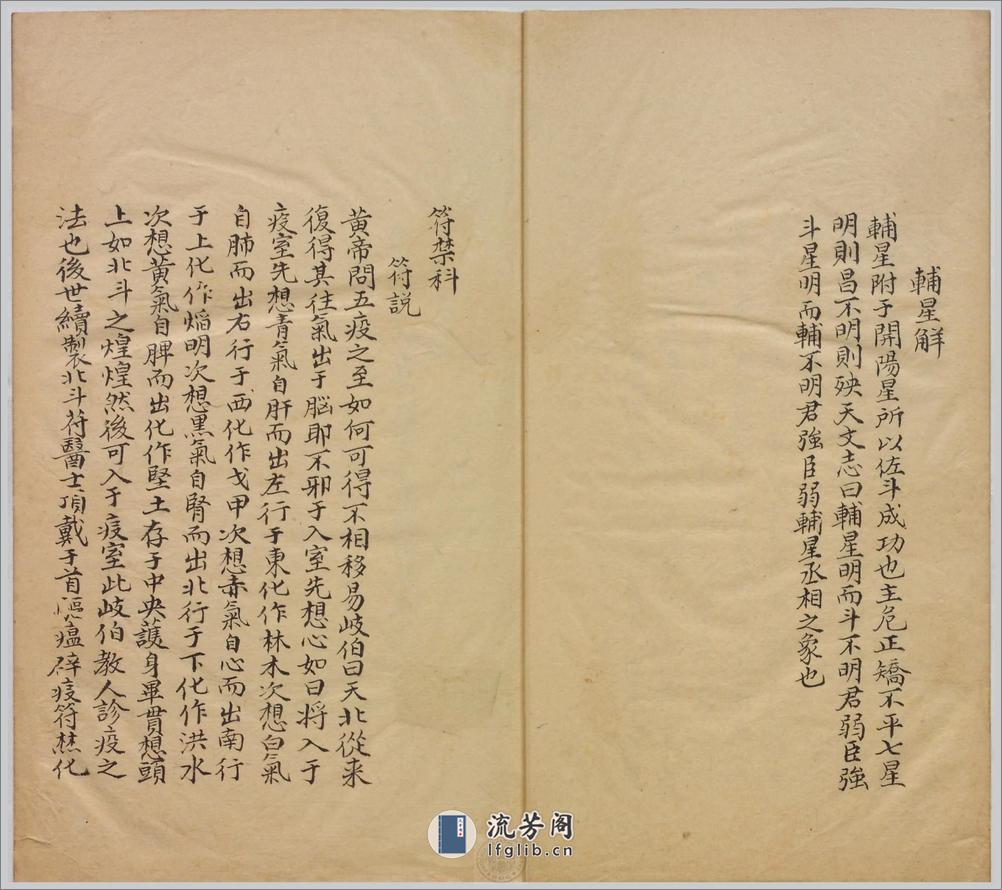 輔星解
輔星附于開陽星所以佐斗成功也主危正矯不平七星
明則昌不明則殃天文志曰輔星明而斗不明君弱臣強
斗星明而輔不明君強臣弱輔星丞相之象也
符禁科
符説
黄帝問五疫之至如何可得不相移易岐伯曰天北從来
復得其往氣出于腦耶不邪于入室先想心如日将入于
疫室先想青氣自肝而出左行于東化作林木次想白氣
自肺而出右行于西化作戈甲次想赤氣自心而出南行
于上化作焔明次想黒氣自腎而出北行于下化作洪水
次想黃氣自脾而出化作堅土存于中央護身畢貫想頭
上如北斗之煌煌然後可入于疫室此岐伯教人診疫之
法也後世續製北斗符醫士頂戴于首瘟疫符禁化
流芳阁
lfglib.cn